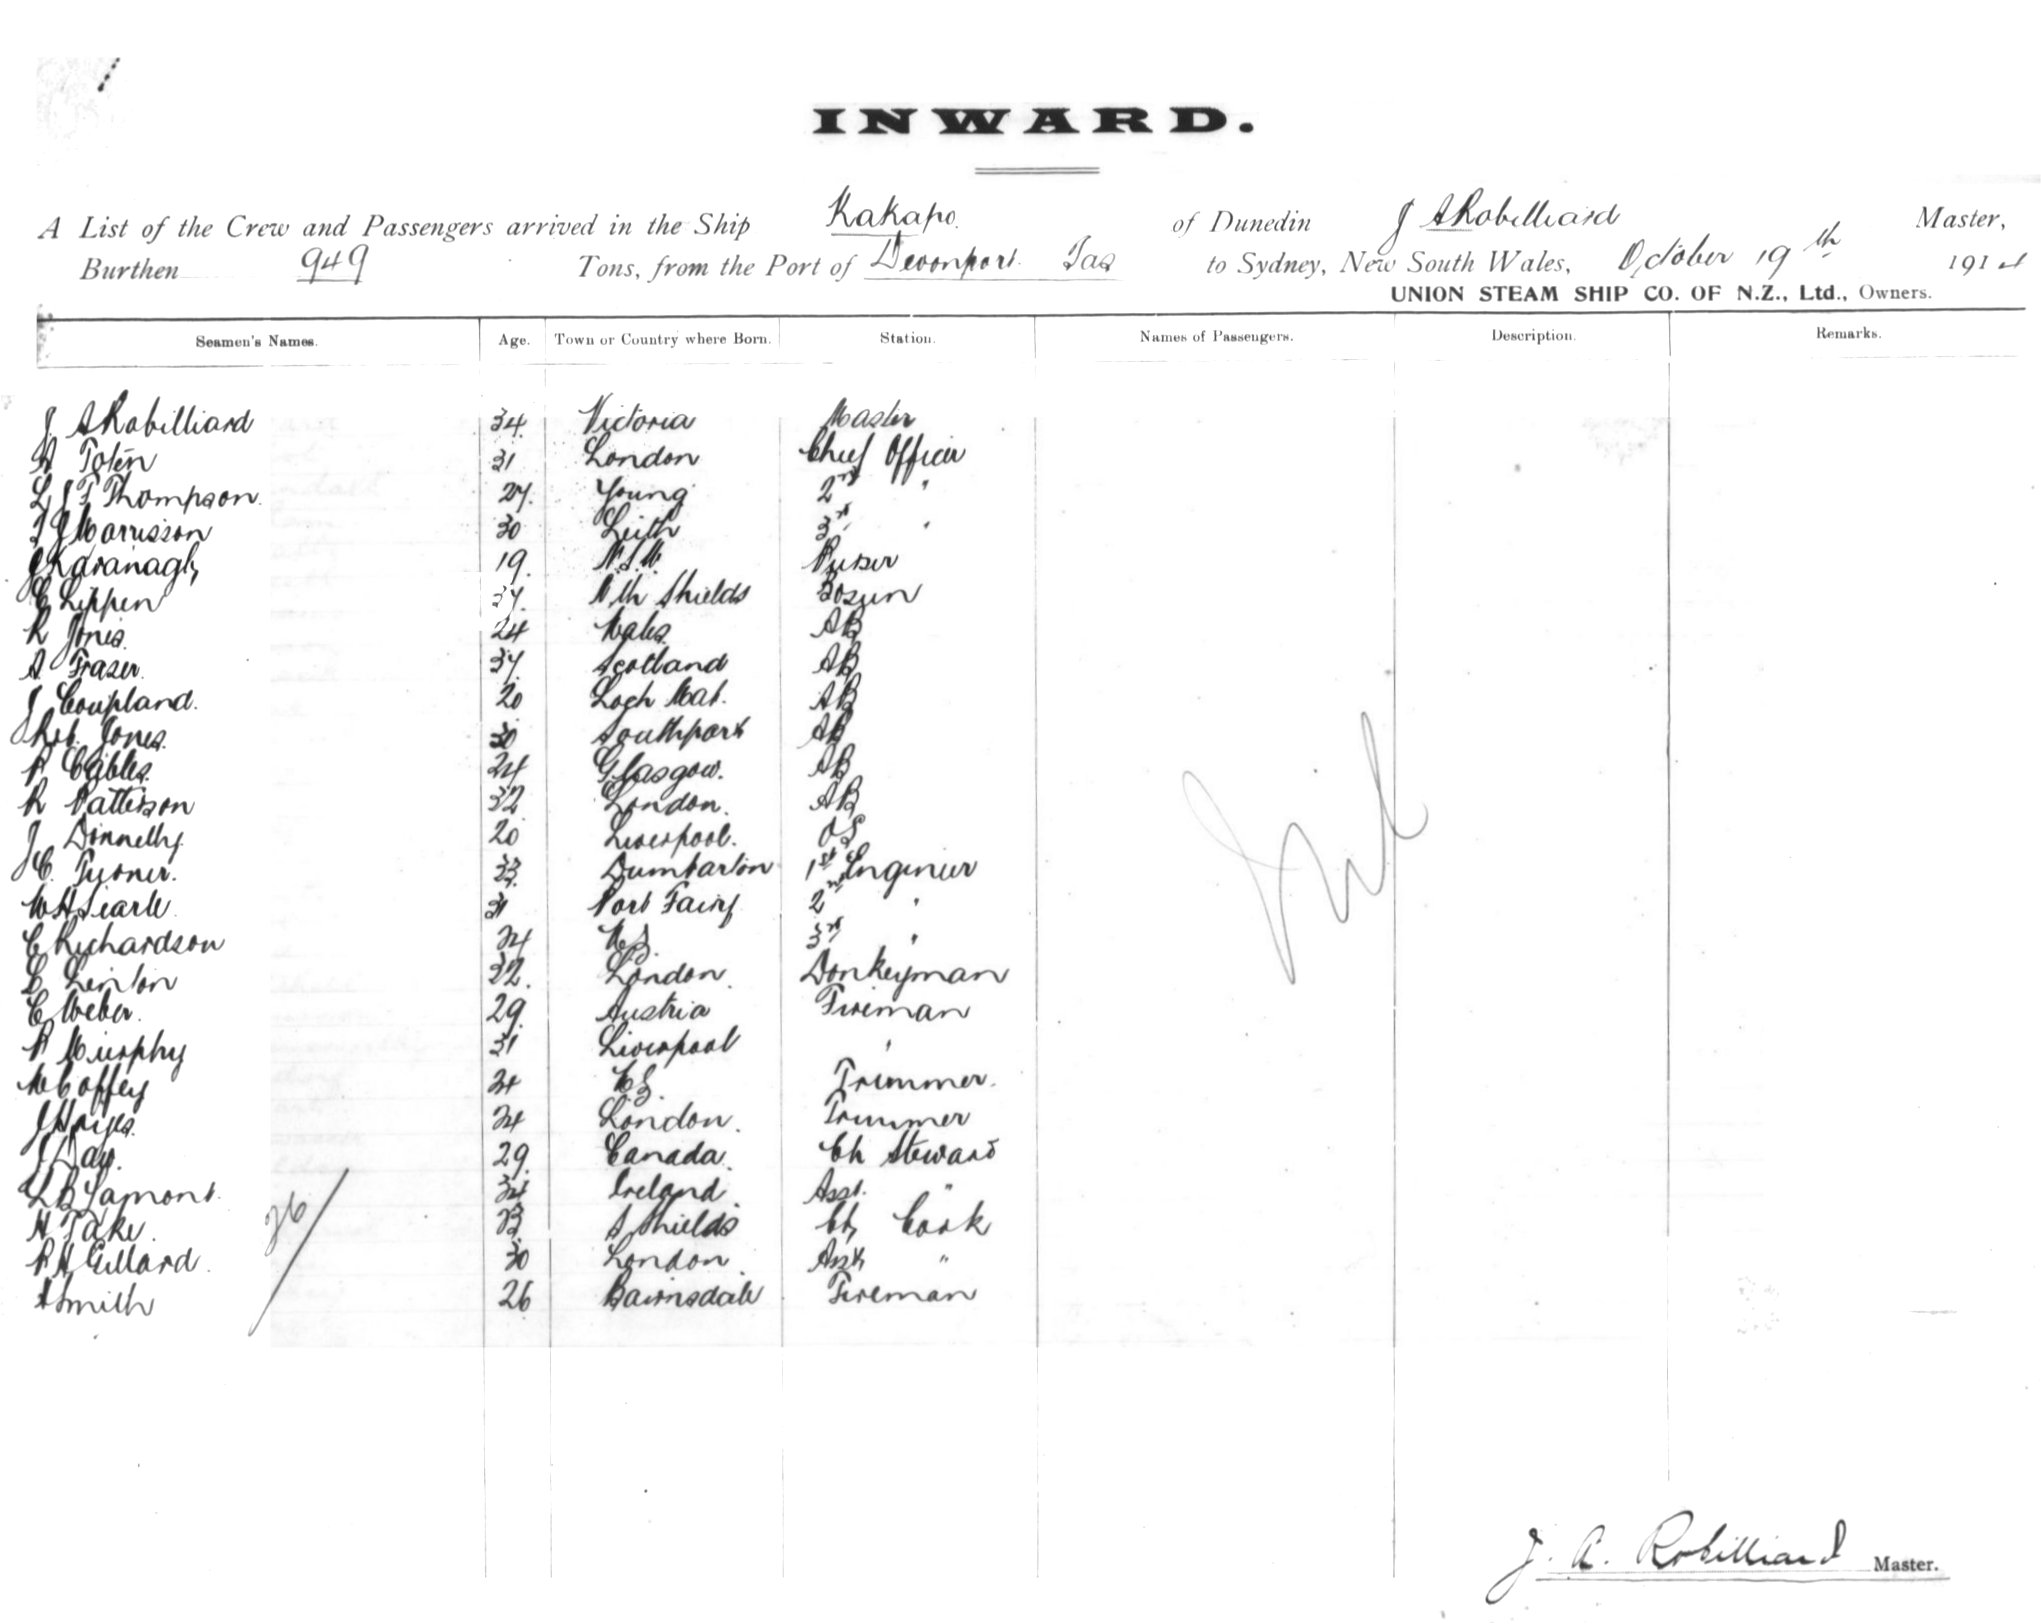 INWARD.
A List of the Crew and Passengers arrived in the Ship Kakapo. of Dunedin J A Robilliard Master,
Burthen 949 Tons, from the Port of Devonport Tas to Sydney, New South Wales, October 19th 1914
UNION STEAM SHIP CO. OF N.Z., Ltd., Owners.
Seamen's Names. Age. Town or Country where Born. Station. Names of Passengers. Description. Remarks.
J A Robilliard 34 Victoria Master
31 London Chief Officer
L J T Thompson. 27. Young 2nd "
Morrisson 30 Leith 3rd "
J Kavanagh 19. N.S.W. Purser
C Lippen 37. Nth Shields Bosun
R Jones. 24 Wales. AB
A Fraser. 37. Scotland AB
J Coupland. 20 Loch Mab. AB
Rob. Jones. 30 Southport AB
24 Glasgow. AB
R Pattison 32 London. AB
J Donnelly. 20 Liverpool. OS
C. Turner. 33. Dumbarton 1st Engineer
W H Searle 31 Port Fairy 2nd "
C Richardson 24 NZ. 3rd "
C Linton 32. London. Donkeyman
C Weber. 29. Austria Fireman
P Murphy 31 Liverpool "
M Coffey 24 NZ. Trimmer.
J Hayes. 24 London. Trimmer
J Day. 29. Canada. Ch Steward
L B Lamont. 34 Ireland. Asst. "
H Take. 23. S Shields Ch Cook
P H Gillard. 30 London Asst "
Smith 26 Bairnsdale Fireman
26/
Nil
J. A. Robilliard Master.